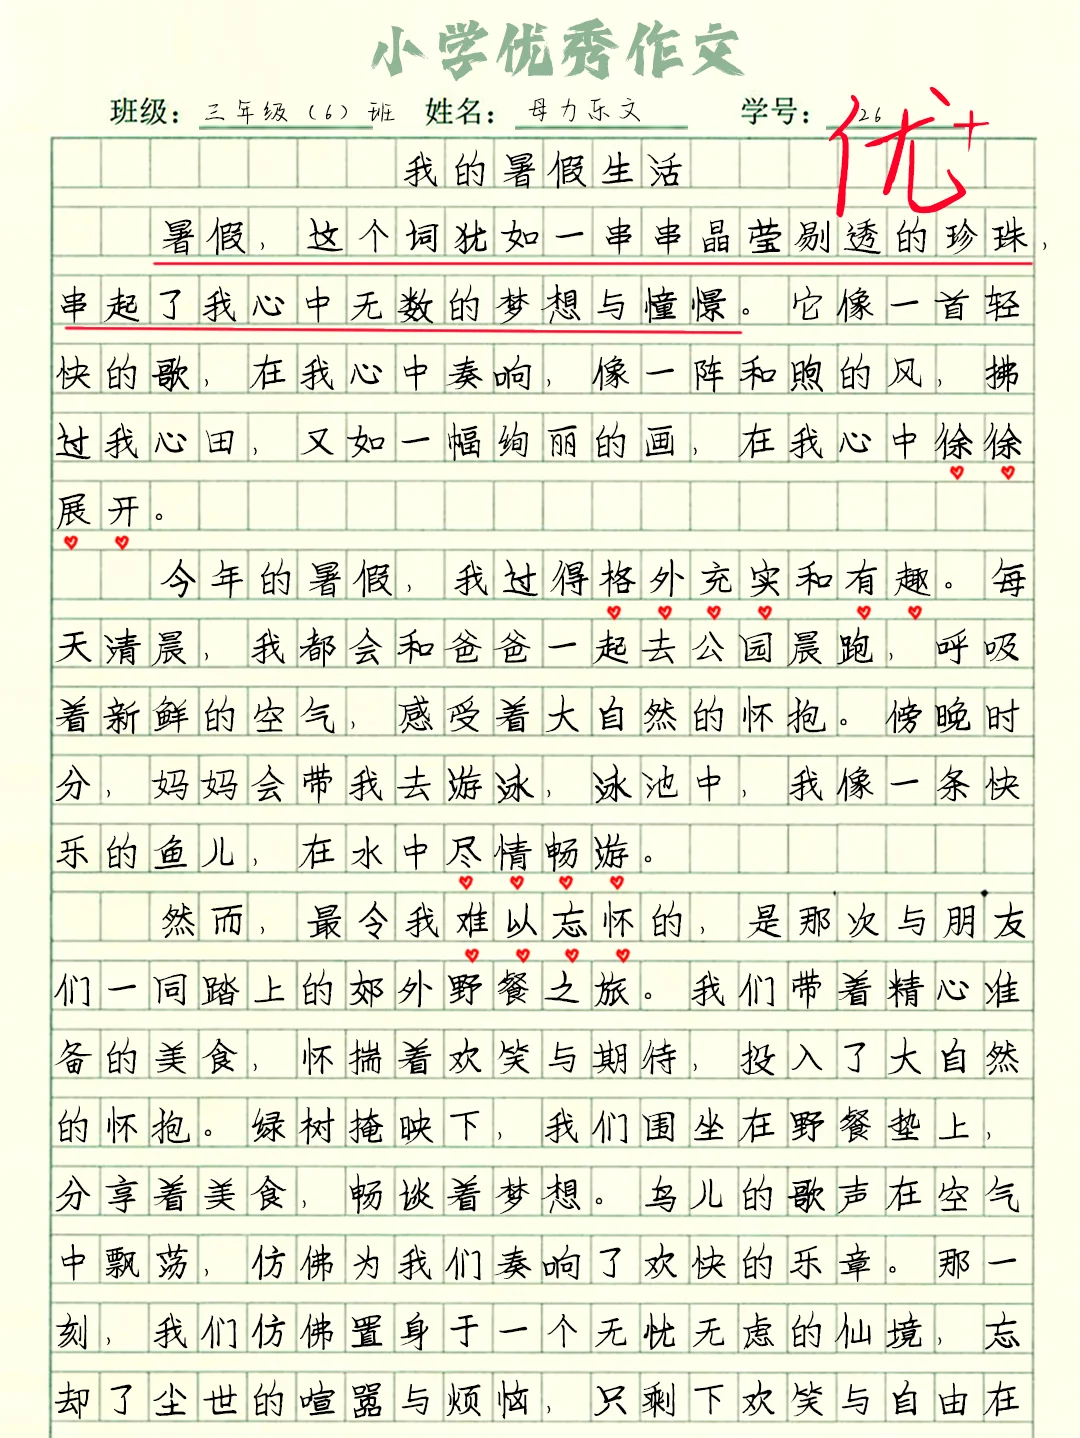 小学优秀作文
班级：三年级（6）班 姓名：母力乐文 学号：26
优+
我的暑假生活
暑假，这个词犹如一串串晶莹剔透的珍珠，
串起了我心中无数的梦想与憧憬。它像一首轻
快的歌，在我心中奏响，像一阵和煦的风，拂
过我心田，又如一幅绚丽的画，在我心中徐徐
展开。
今年的暑假，我过得格外充实和有趣。每
天清晨，我都会和爸爸一起去公园晨跑，呼吸
着新鲜的空气，感受着大自然的怀抱。傍晚时
分，妈妈会带我去游泳，泳池中，我像一条快
乐的鱼儿，在水中尽情畅游。
然而，最令我难以忘怀的，是那次与朋友
们一同踏上的郊外野餐之旅。我们带着精心准
备的美食，怀揣着欢笑与期待，投入了大自然
的怀抱。绿树掩映下，我们围坐在野餐垫上，
分享着美食，畅谈着梦想。鸟儿的歌声在空气
中飘荡，仿佛为我们奏响了欢快的乐章。那一
刻，我们仿佛置身于一个无忧无虑的仙境，忘
却了尘世的喧嚣与烦恼，只剩下欢笑与自由在